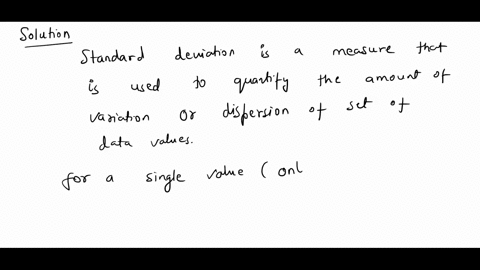 Solution
Standard deviation is a measure that
is used to quantify the amount of
variation or dispersion of set of
data values.
for a single value ( onl